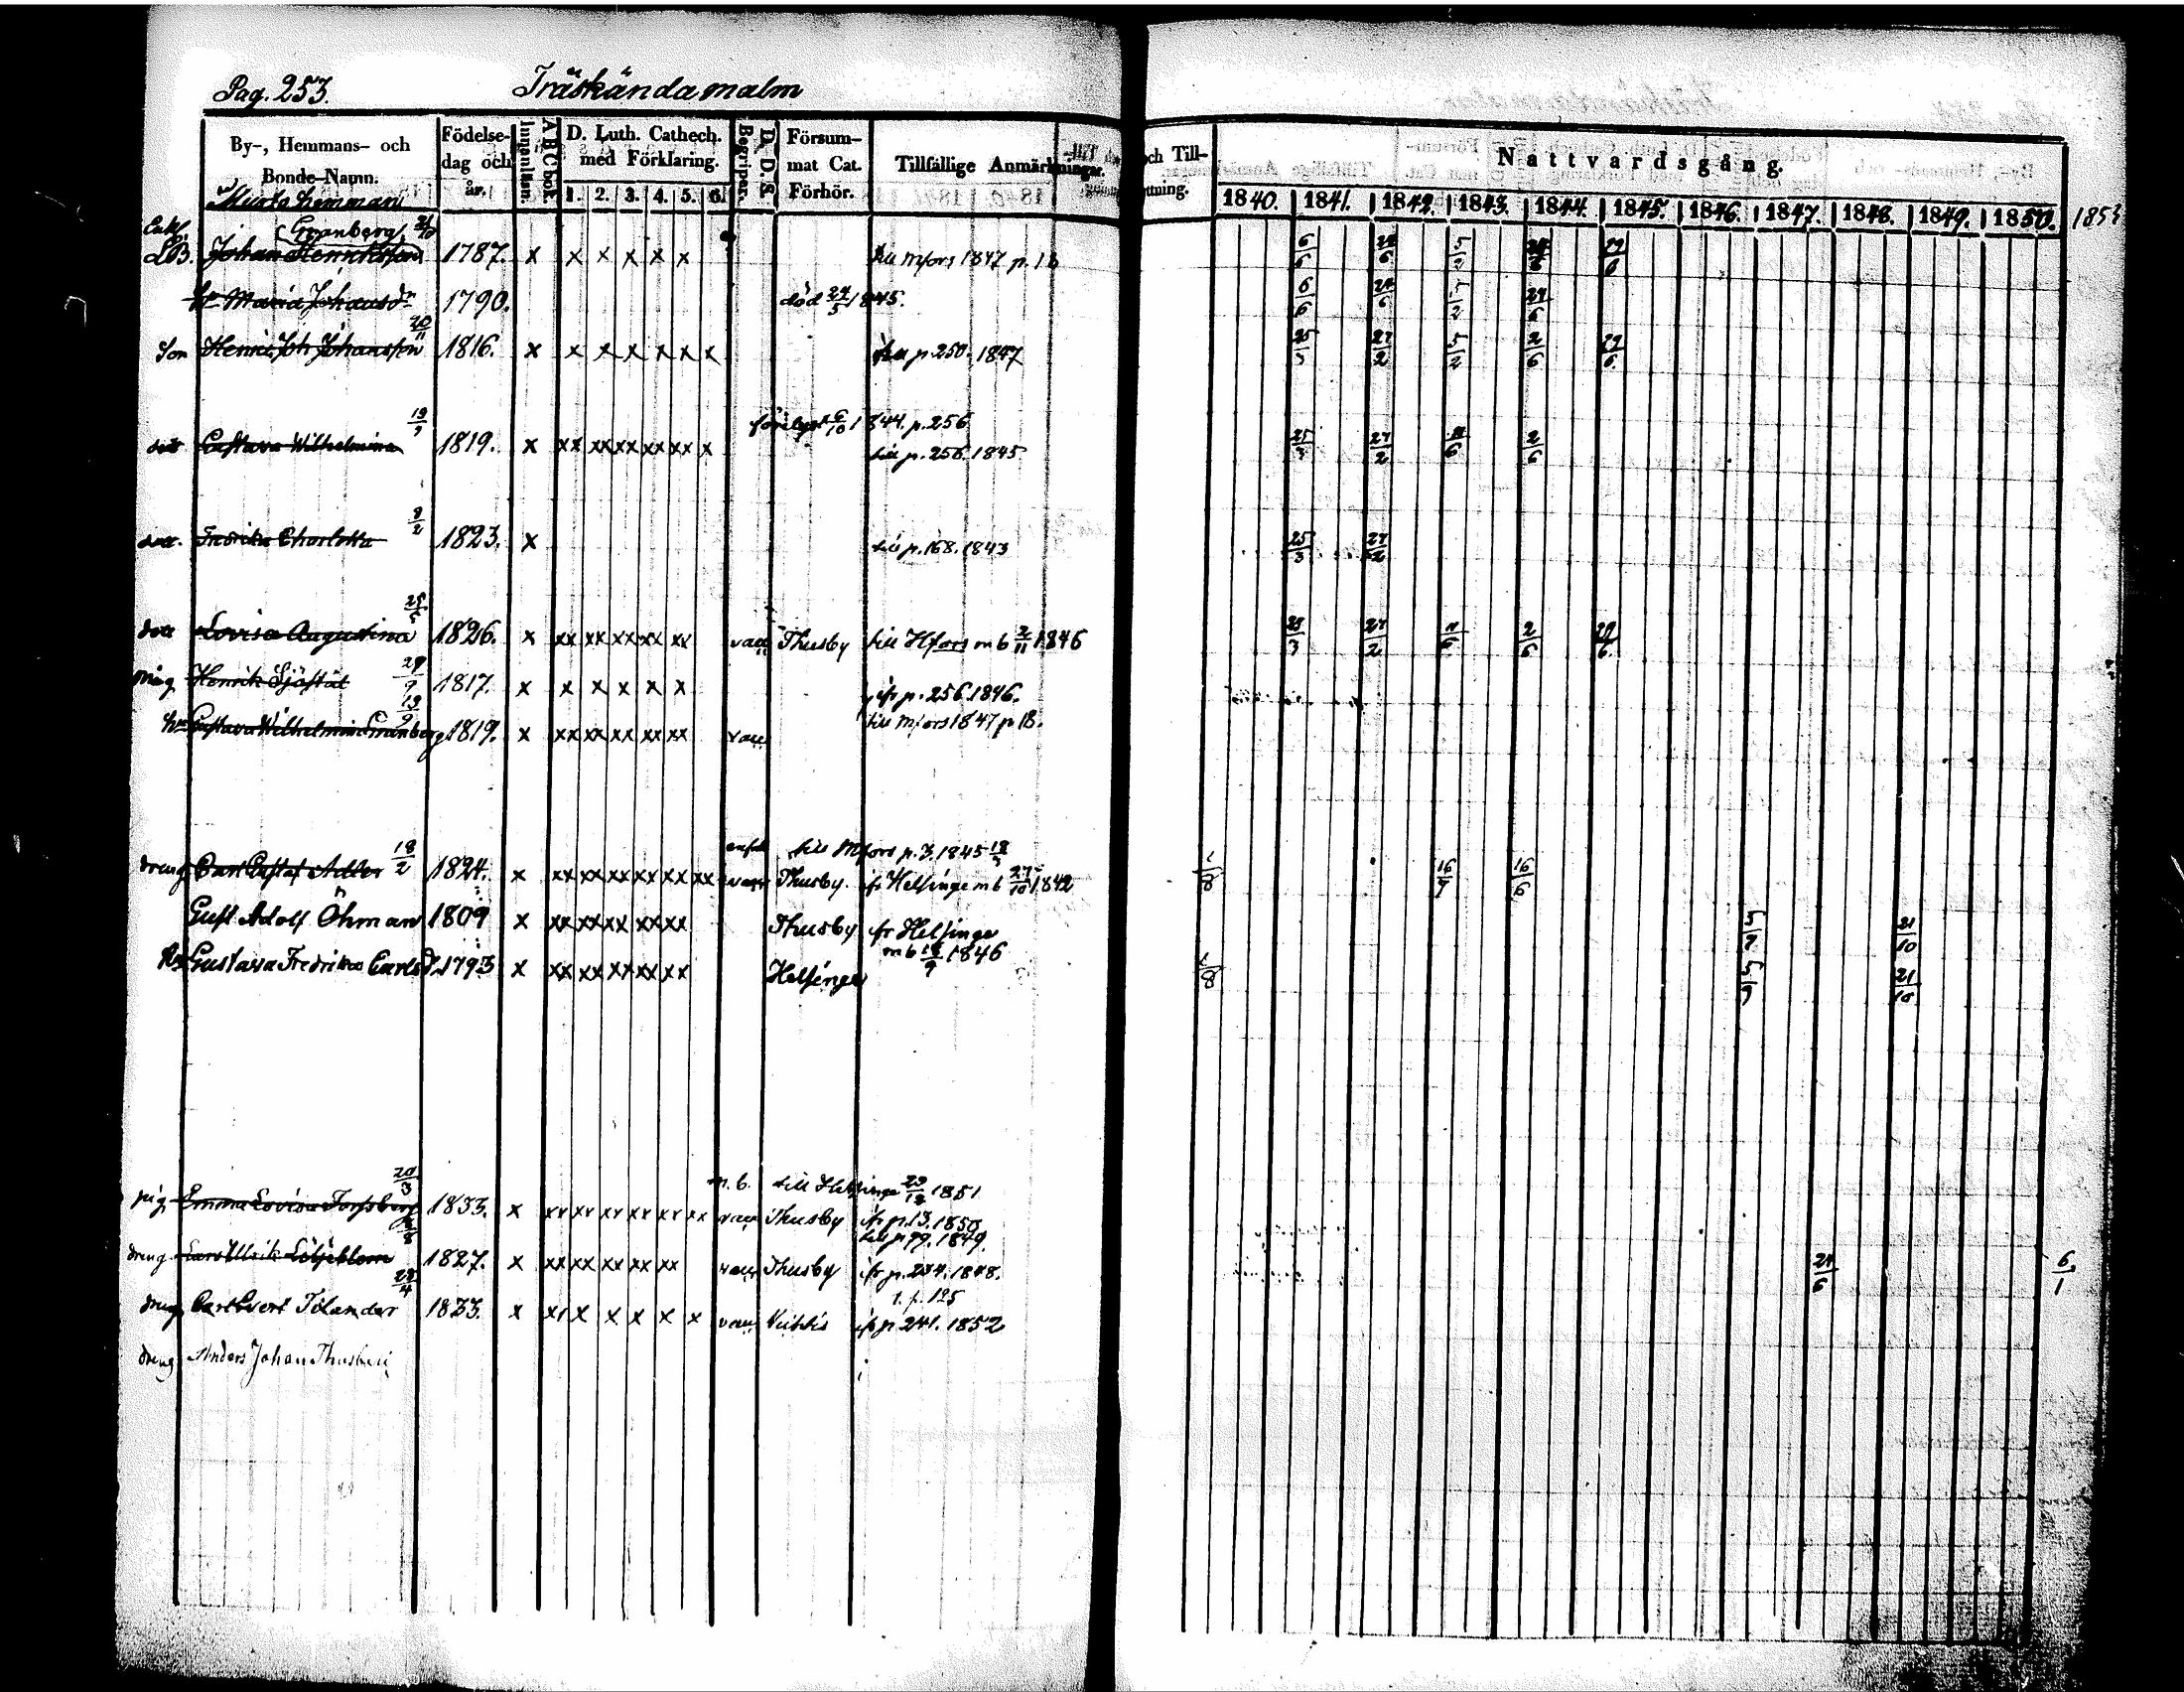 Pag. 253. Träskända malm
By-, Hemmans- och Bonde-Namn. Födelse-dag och år. Innanläsn. ABC bok D. Luth. Cathech. med Förklaring. 1. 2. 3. 4. 5. 6. Begriper. D. D. S. Försum-mat Cat. Förhör. Tillfällige Anmärkningar. och Till- ttning. Nattvardsgång.
1840. 1841. 1842. 1843. 1844. 1845. 1846. 1847. 1848. 1849. 1850. 1851
hemman
Granberg
LB. Johan Henricksson 1787. x x x x x x till Mfors 1847 p. 18 6/6 24/6 5/2 24/6 29/6
hu Maria Johansdr 1790. död 24/5 1845. 6/6 24/6 5/2 24/6
20/11
Son Henric Joh Johansson 1816. x x x x x x x p. 250. 1847 25/3 27/2 5/2 2/6 29/6
förelyst 6/10 1844. p. 256
Gustava Wilhelmina 1819. x xx xx xx xx xx x till p. 256. 1845 25/3 27/2 2/6
8/2
Fredrika Charlotta 1823. x till p. 168. 1843 25/3 27/2
Lovisa Augustina 1826. x xx xx xx xx xx vacc Thusby till Hfors m b 2/11 1846 25/3 27/2 2/6 29/6
29/9
måg Henrik Sjöstät 1817. x x x x x x ifr p. 256. 1846.
19/9
hu Gustava Wilhelmina Granberg 1819. x xx xx xx xx xx vacc till Mfors 1847 p 18.
till Mfors p. 3. 1845
dreng Carl Gustaf Adler 18/2 1824. x xx xx xx xx xx xx vacc Thusby. ifr Helsinge m b 27/10 1842 16/6
Gust Adolf Öhman 1809 x xx xx xx xx xx Thusby fr Helsinge 5/9 21/10
m b 18/9 1846
hu Gustava Fredrika Carlsd. 1793 x xx xx xx xx xx Helsinge 5/9 21/10
20/3
m. b. till Helsinge 29/12 1851
pig Emma Lovisa Forssberg 1833. x xx xx xx xx xx xx vacc Thusby ifr p. 13. 1850
till p 99. 1849.
dreng Lars Ulrik Liljeblom 1827. x xx xx xx xx xx vacc Thusby ifr p. 234. 1848. 24/6 6/1
t. p. 125
dreng Carl Evert Tilander 1833. x xx x x x x x vacc Vichtis ifr p 241. 1852
dreng Anders Johan Thusberg